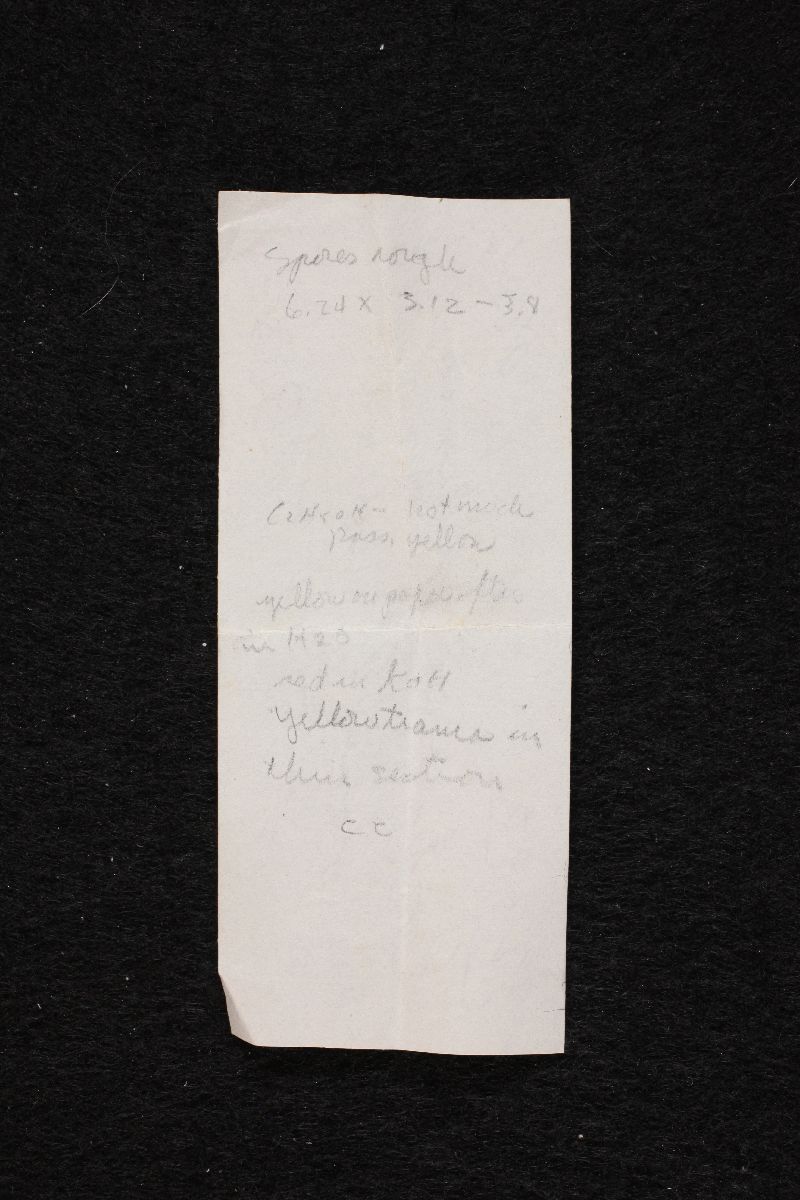 Spores rough
6.24 x 3.12 - 3.8
C2H5OH - not much
poss. yellow
yellow on paper after
in H2O
red in KOH
Yellow trama in
thin section
cc